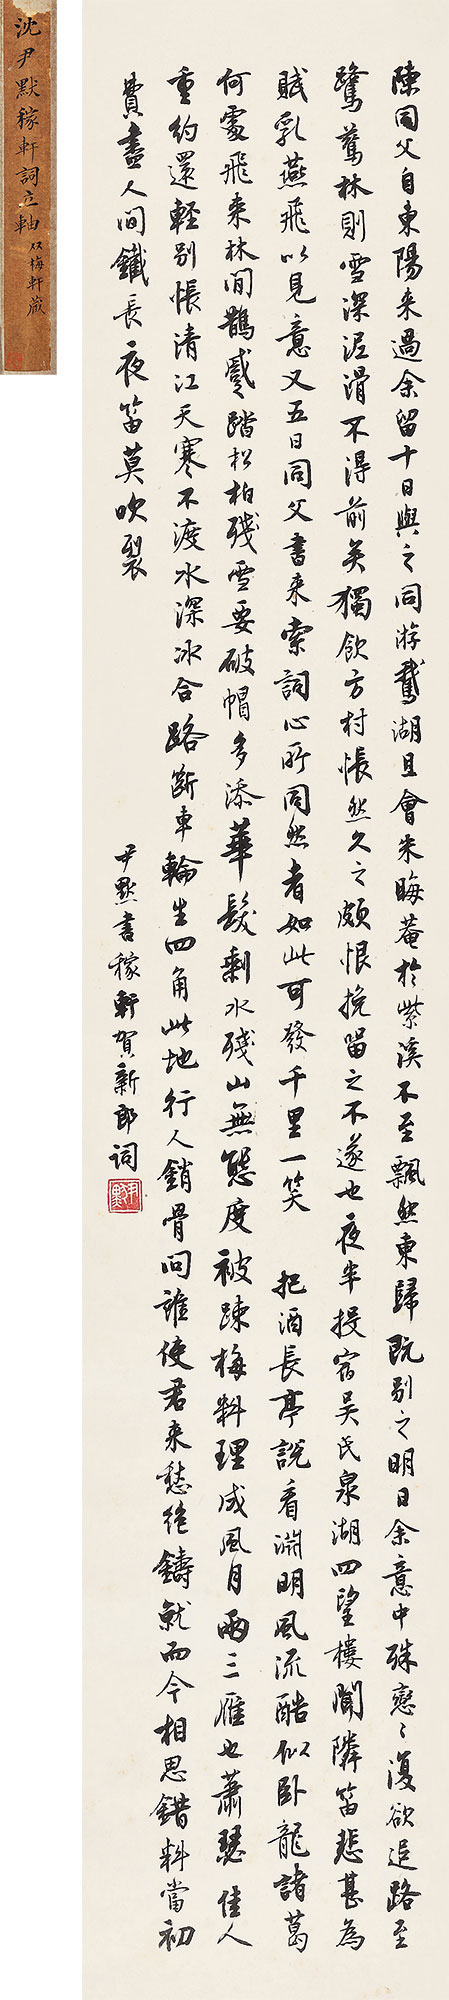 陳同父自東陽来過余留十日與之同游鵞湖且會朱晦菴於紫溪不至飄然東歸既別之明日余意中殊戀〻復欲追路至
鷺鷥林則雪深泥滑不得前矣獨飲方村悵然久之頗恨挽留之不遂也夜半投宿吳氏泉湖四望樓聞隣笛悲甚為
賦乳燕飛以見意又五日同父書来索詞心所同然者如此可發千里一笑 把酒長亭說看淵明風流酷似卧龍諸葛
何處飛来林間鵲蹙踏松柏殘雪要破帽多添華髮剩水殘山無態度被踈梅料理成風月兩三雁也蕭瑟 佳人
重約還輕別悵清江天寒不渡水深冰合路斷車輪生四角此地行人銷骨問誰使君来愁絕鑄就而今相思錯料當初
費盡人間鐵長夜笛莫吹裂
尹默書稼軒賀新郎詞
尹默
沈尹默稼軒詞立軸 双梅軒藏